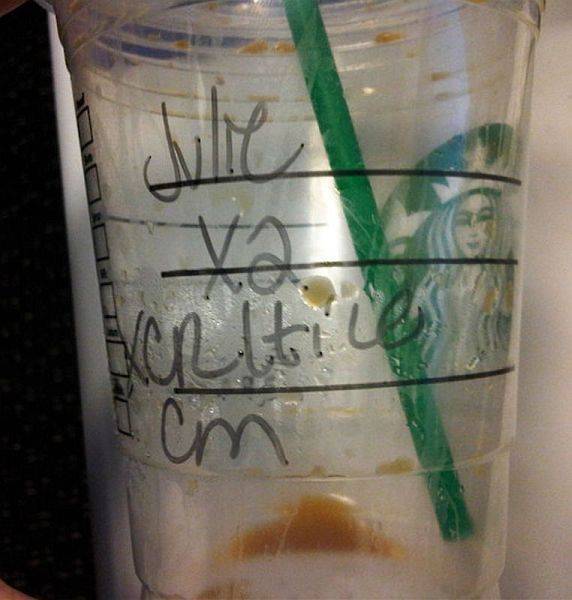 Julie
x2
xcr lt ice
cm